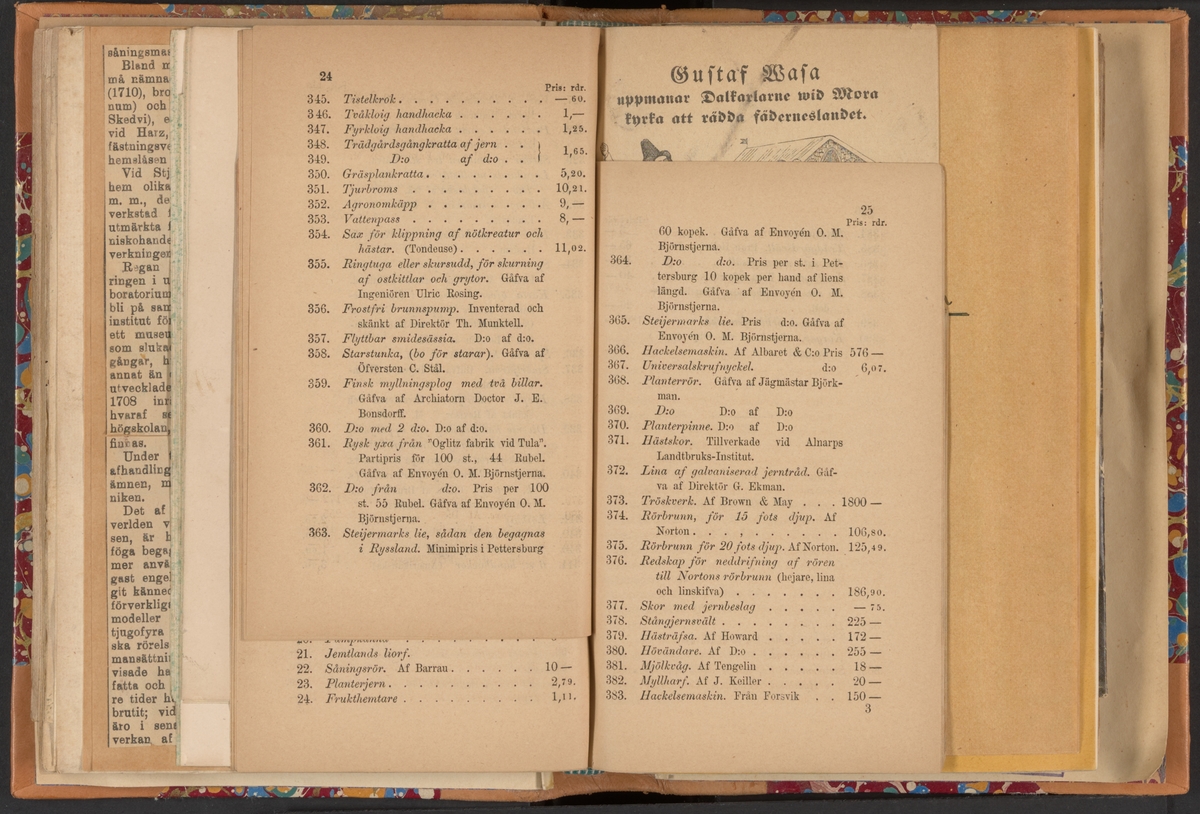 såningsma
Bland
må nämna
(1710), bro
num) och
Skedvi), e
vid Harz,
fästningsv
hemslåsen
Vid Stj
hem olika
m. m., de
verkstad
utmärkta
niskohande
verkninger
Regan
ringen i u
boratorium
bli på sam
institut fö
ett museu
som sluka
gångar, h
annat än
utvecklade
1708 inr
hvaraf s
högskolan,
finnas.
Under
afhandling
ämnen, m
niken.
Det af
verlden v
sen, är h
föga bega
mer anvä
gast enge
git känne
förverklig
modeller
tjugofyra
ska rörels
mansättni
visade ha
fatta och
re tider h
brutit; vid
äro i sen
verkan af
24
Pris: rdr.
345. Tistelkrok . . . . . . . . . . — 60.
346. Tvåkloig handhacka . . . . . . 1,—
347. Fyrkloig handhacka . . . . . . 1,25.
348. Trädgårdsgångkratta af jern . . } 1,65.
349. D:o af d:o . . }
350. Gräsplankratta . . . . . . . . 5,20.
351. Tjurbroms . . . . . . . . . 10,21.
352. Agronomkäpp . . . . . . . . 9,—
353. Vattenpass . . . . . . . . . 8,—
354. Sax för klippning af nötkreatur och
hästar. (Tondeuse) . . . . . . 11,02.
355. Ringtuga eller skursudd, för skurning
af ostkittlar och grytor. Gåfva af
Ingeniören Ulric Rosing.
356. Frostfri brunnspump. Inventerad och
skänkt af Direktör Th. Munktell.
357. Flyttbar smidesässia. D:o af d:o.
358. Starstunka, (bo för starar). Gåfva af
Öfversten C. Stål.
359. Finsk myllningsplog med två billar.
Gåfva af Archiatorn Doctor J. E.
Bonsdorff.
360. D:o med 2 d:o. D:o af d:o.
361. Rysk yxa från "Oglitz fabrik vid Tula".
Partipris för 100 st., 44 Rubel.
Gåfva af Envoyén O. M. Björnstjerna.
362. D:o från d:o. Pris per 100
st. 55 Rubel. Gåfva af Envoyén O. M.
Björnstjerna.
363. Steijermarks lie, sådan den begagnas
i Ryssland. Minimipris i Pettersburg
21. Jemtlands liorf.
22. Såningsrör. Af Barrau . . . . . . 10 —
23. Planterjern . . . . . . . . . . 2,79.
24. Frukthemtare . . . . . . . . . 1,11.
Gustaf Wasa
uppmanar Dalkarlarne wid Mora
kyrka att rädda fäderneslandet.
25
Pris: rdr.
60 kopek. Gåfva af Envoyén O. M.
Björnstjerna.
364. D:o d:o. Pris per st. i Pet-
tersburg 10 kopek per hand af liens
längd. Gåfva af Envoyén O. M.
Björnstjerna.
365. Steijermarks lie. Pris d:o. Gåfva af
Envoyén O. M. Björnstjerna.
366. Hackelsemaskin. Af Albaret & C:o Pris 576 —
367. Universalskrufnyckel. d:o 6,07.
368. Planterrör. Gåfva af Jägmästar Björk-
man.
369. D:o D:o af D:o
370. Planterpinne. D:o af D:o
371. Hästskor. Tillverkade vid Alnarps
Landtbruks-Institut.
372. Lina af galvaniserad jerntråd. Gåf-
va af Direktör G. Ekman.
373. Tröskverk. Af Brown & May . . . 1800 —
374. Rörbrunn, för 15 fots djup. Af
Norton . . . . . . . . . . 106,80.
375. Rörbrunn för 20 fots djup. Af Norton. 125,49.
376. Redskap för neddrifning af rören
till Nortons rörbrunn (hejare, lina
och linskifva) . . . . . . . 186,90.
377. Skor med jernbeslag . . . . . — 75.
378. Stångjernsvält . . . . . . . 225 —
379. Hästräfsa. Af Howard . . . . . 172 —
380. Hövändare. Af D:o . . . . . . 255 —
381. Mjölkvåg. Af Tengelin . . . . . 18 —
382. Myllharf. Af J. Keiller . . . . . 20 —
383. Hackelsemaskin. Från Forsvik . . 150 —
3